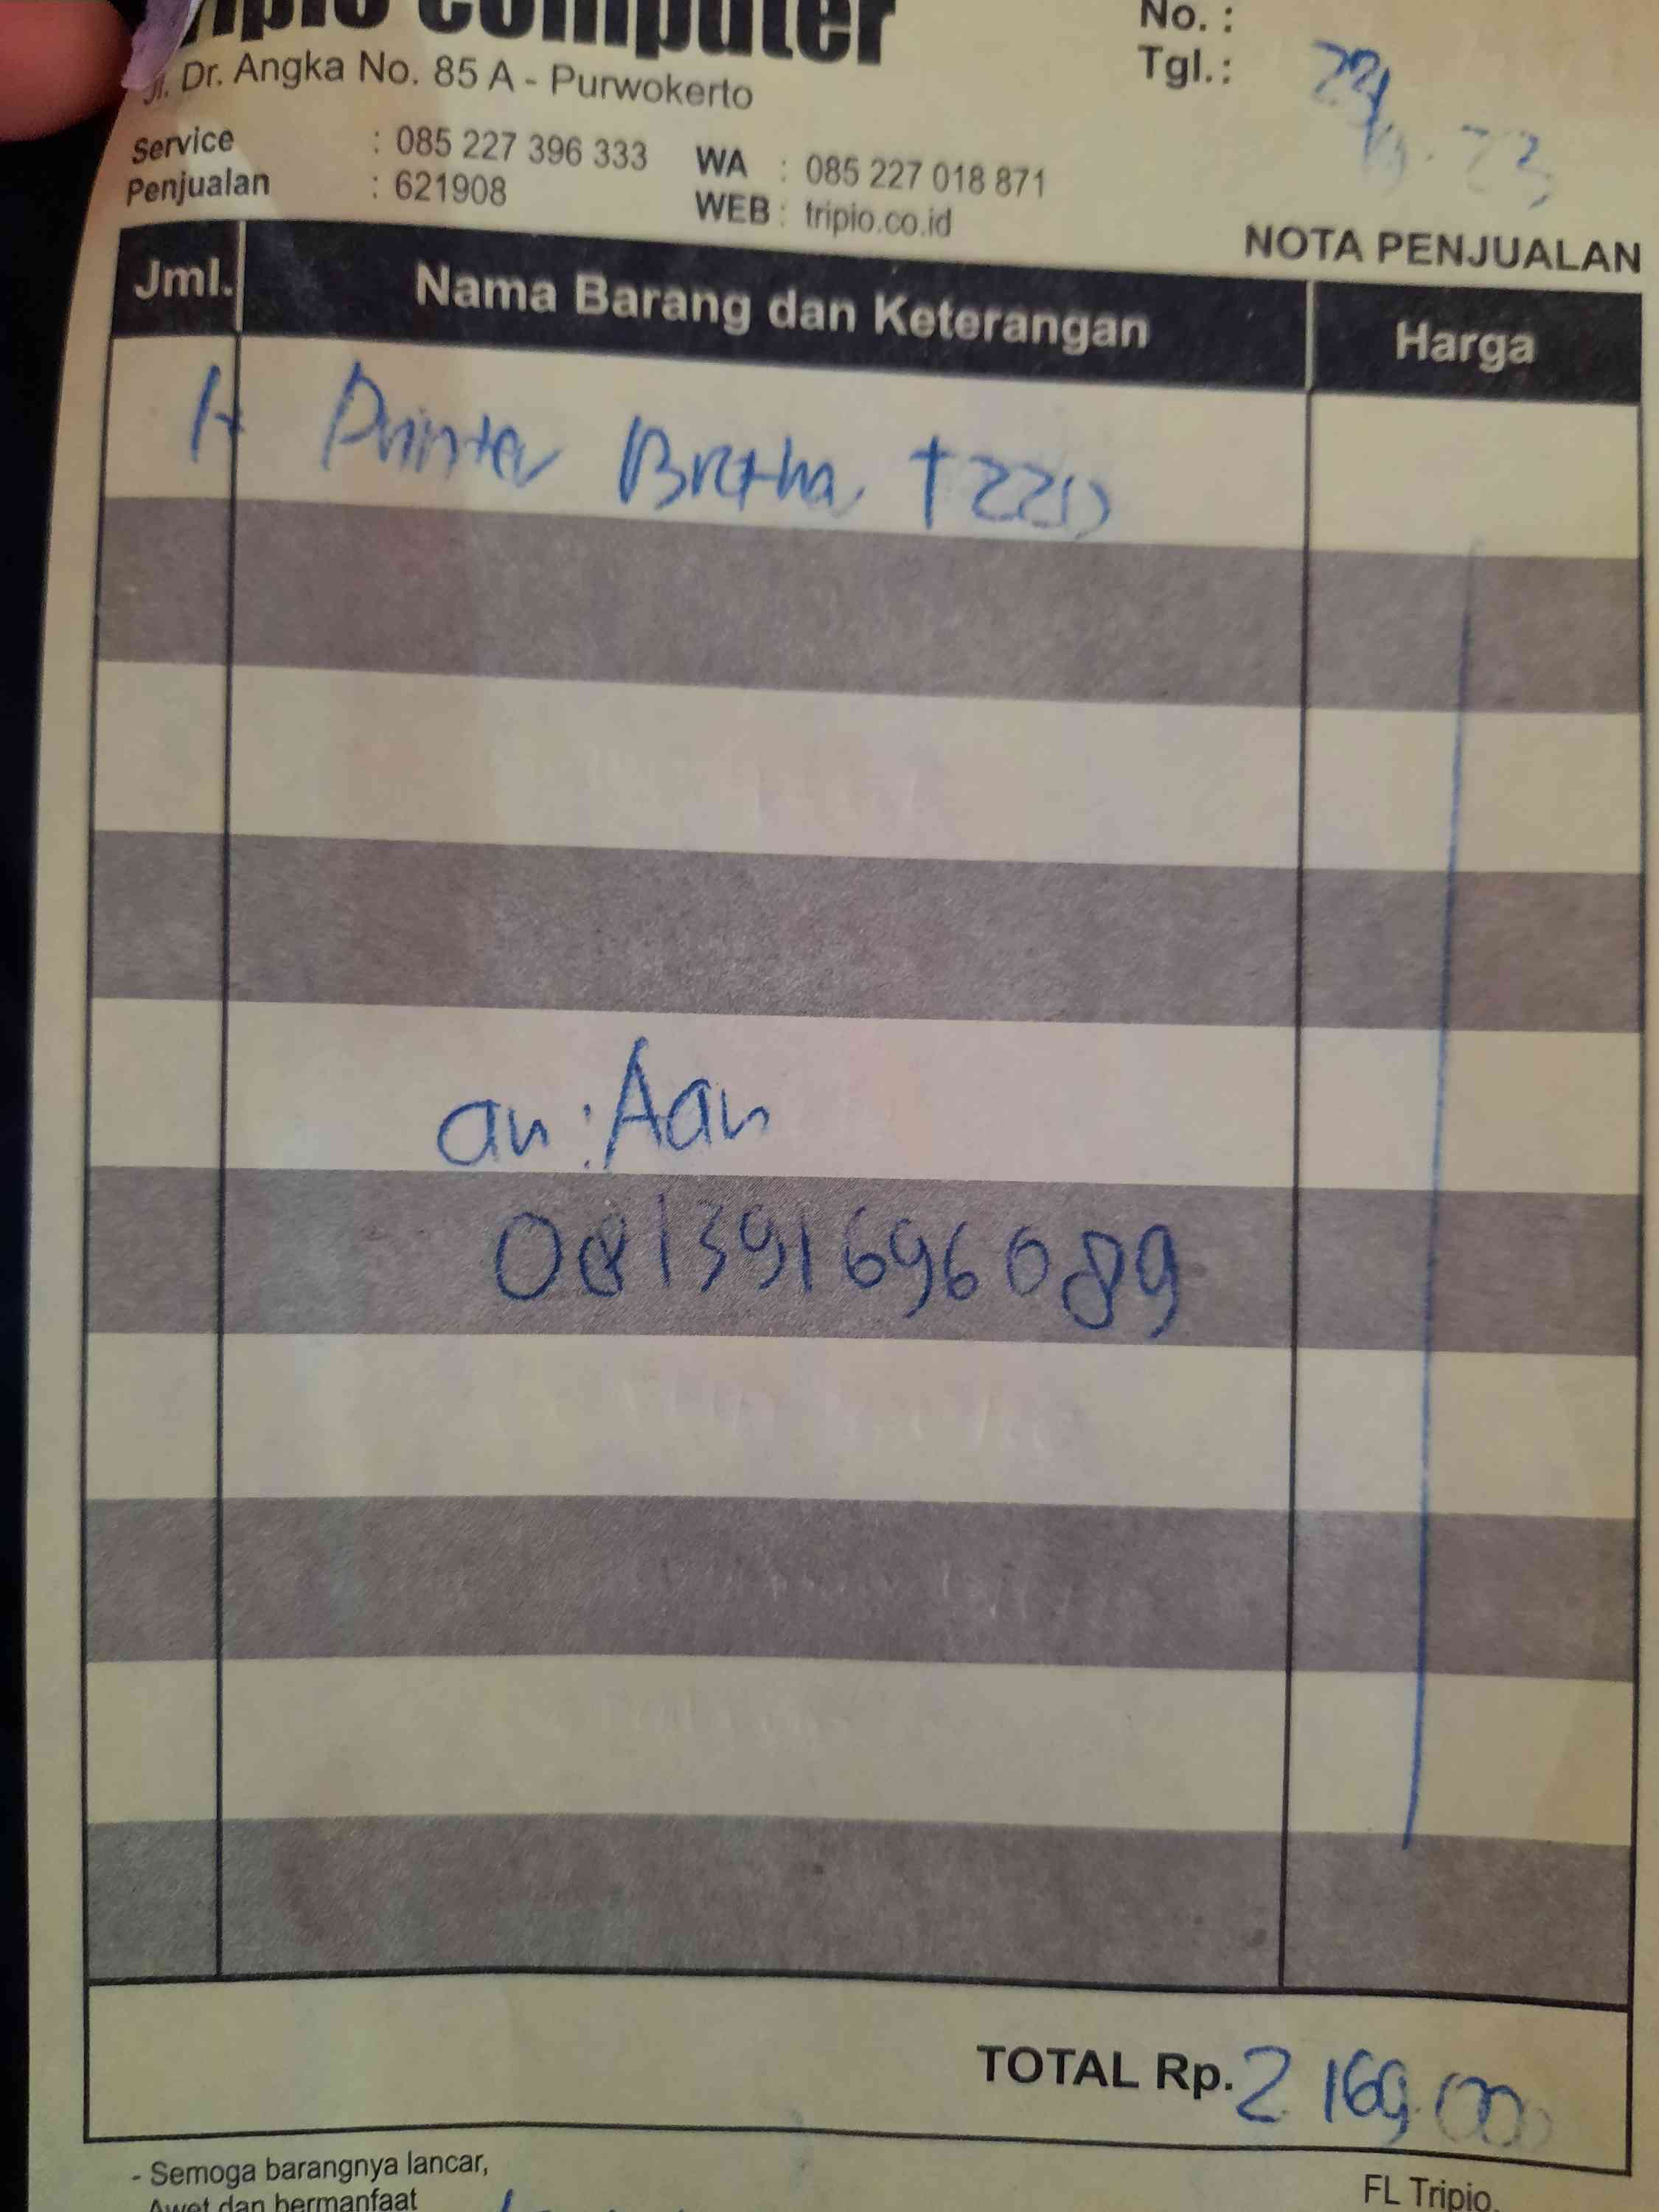 Tripio Computer
Jl. Dr. Angka No. 85 A - Purwokerto
No. :
Tgl. :
Service : 085 227 396 333
WA : 085 227 018 871
Penjualan : 621908
WEB : tripio.co.id
NOTA PENJUALAN
Jml. Nama Barang dan Keterangan Harga
1 Printer Brother T220
an : Aan
081391696089
TOTAL Rp. 2.169.000
- Semoga barangnya lancar,
Awet dan bermanfaat
FL Tripio,